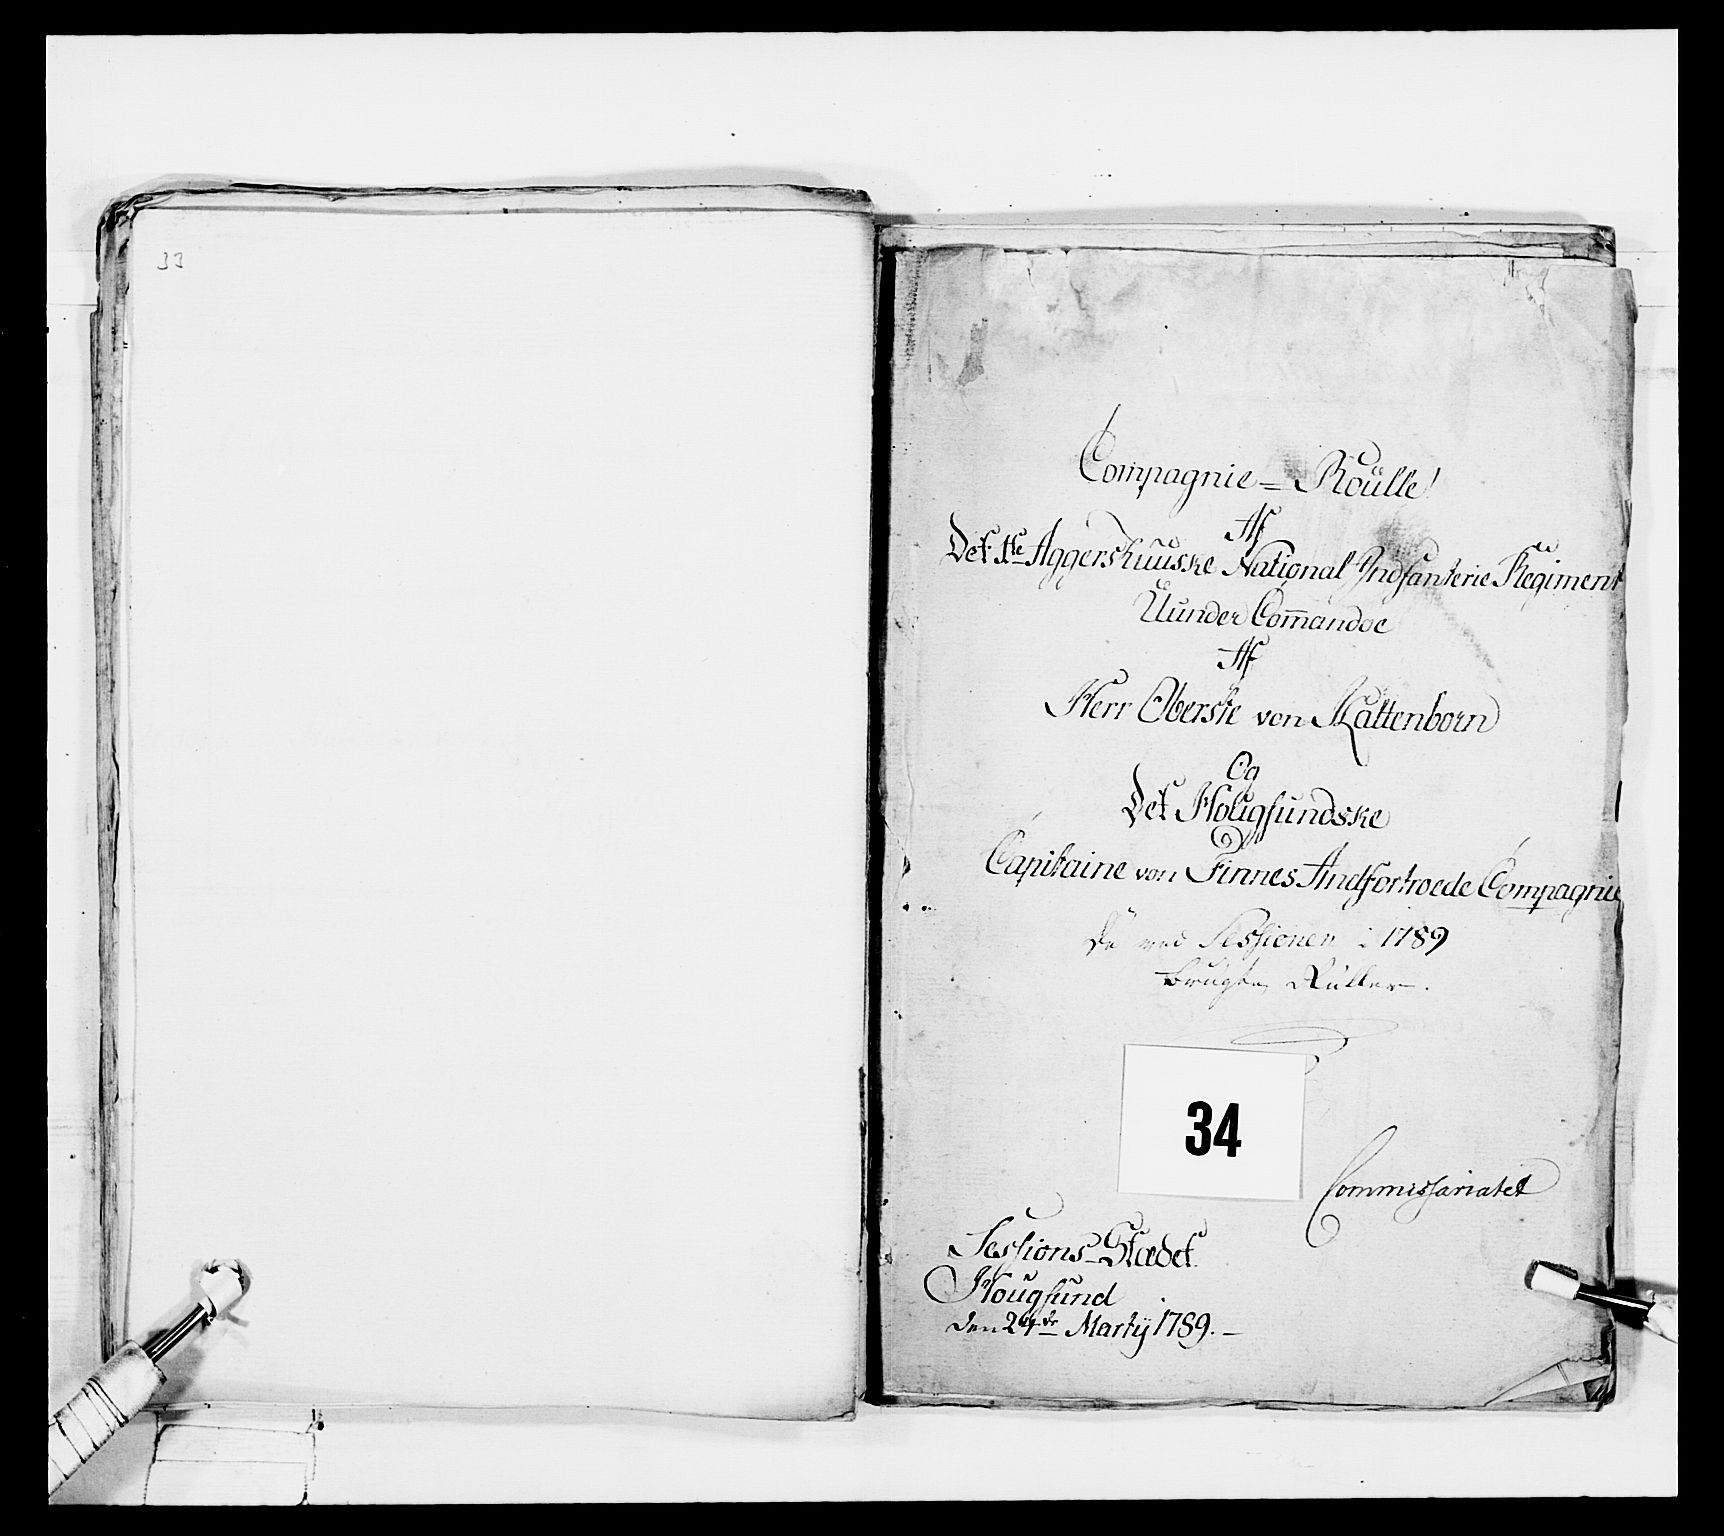 33
Compagnie=Roülle
Af
Det 1te Aggershuuske National Indfanterie Regiment
Uunder Com̄andoe
Af
Herr Oberste von Kaltenborn
Og
Det Hougsundske
Capitaine von Finnes Andfortroede Compagnie
De ved Sessionen i 1789
brugte Ruller.
34
Commissariatet
Sessions-Stædet
Hougsund
den 24de Martÿ 1789.